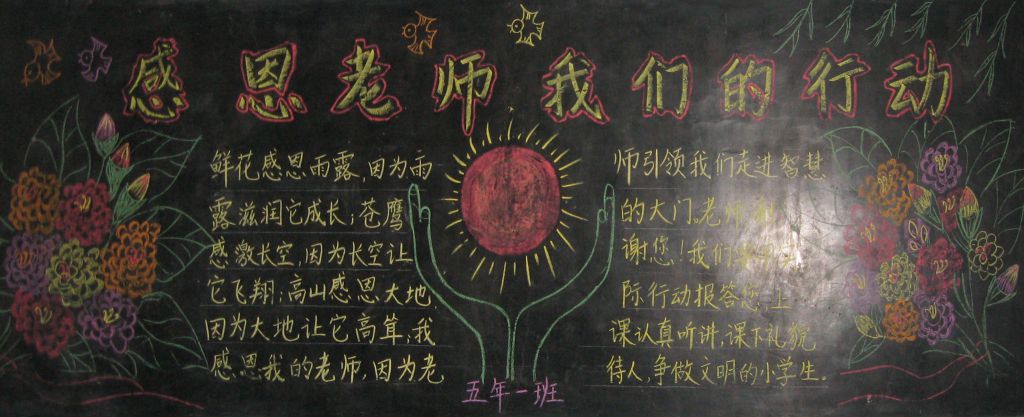 感恩老师我们的行动
鲜花感恩雨露,因为雨
露滋润它成长;苍鹰
感激长空,因为长空让
它飞翔;高山感恩大地
因为大地让它高耸;我
感恩我的老师,因为老
师引领我们走进智慧
的大门。老师
谢您!我们
际行动报答您,上
课认真听讲,课下礼貌
待人,争做文明的小学生。
五年一班